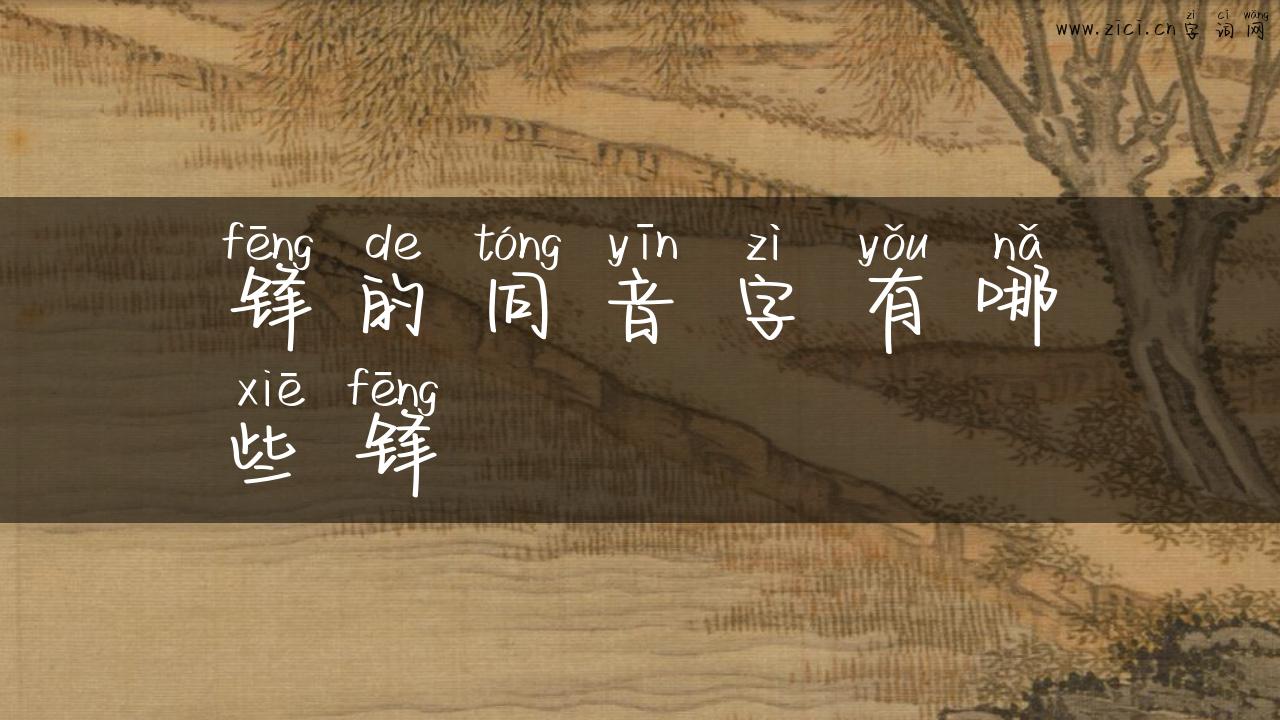 zì cí wǎng
www.zici.cn字词网
fēng de tóng yīn zì yǒu nǎ
锋的同音字有哪
xiē fēng
些锋